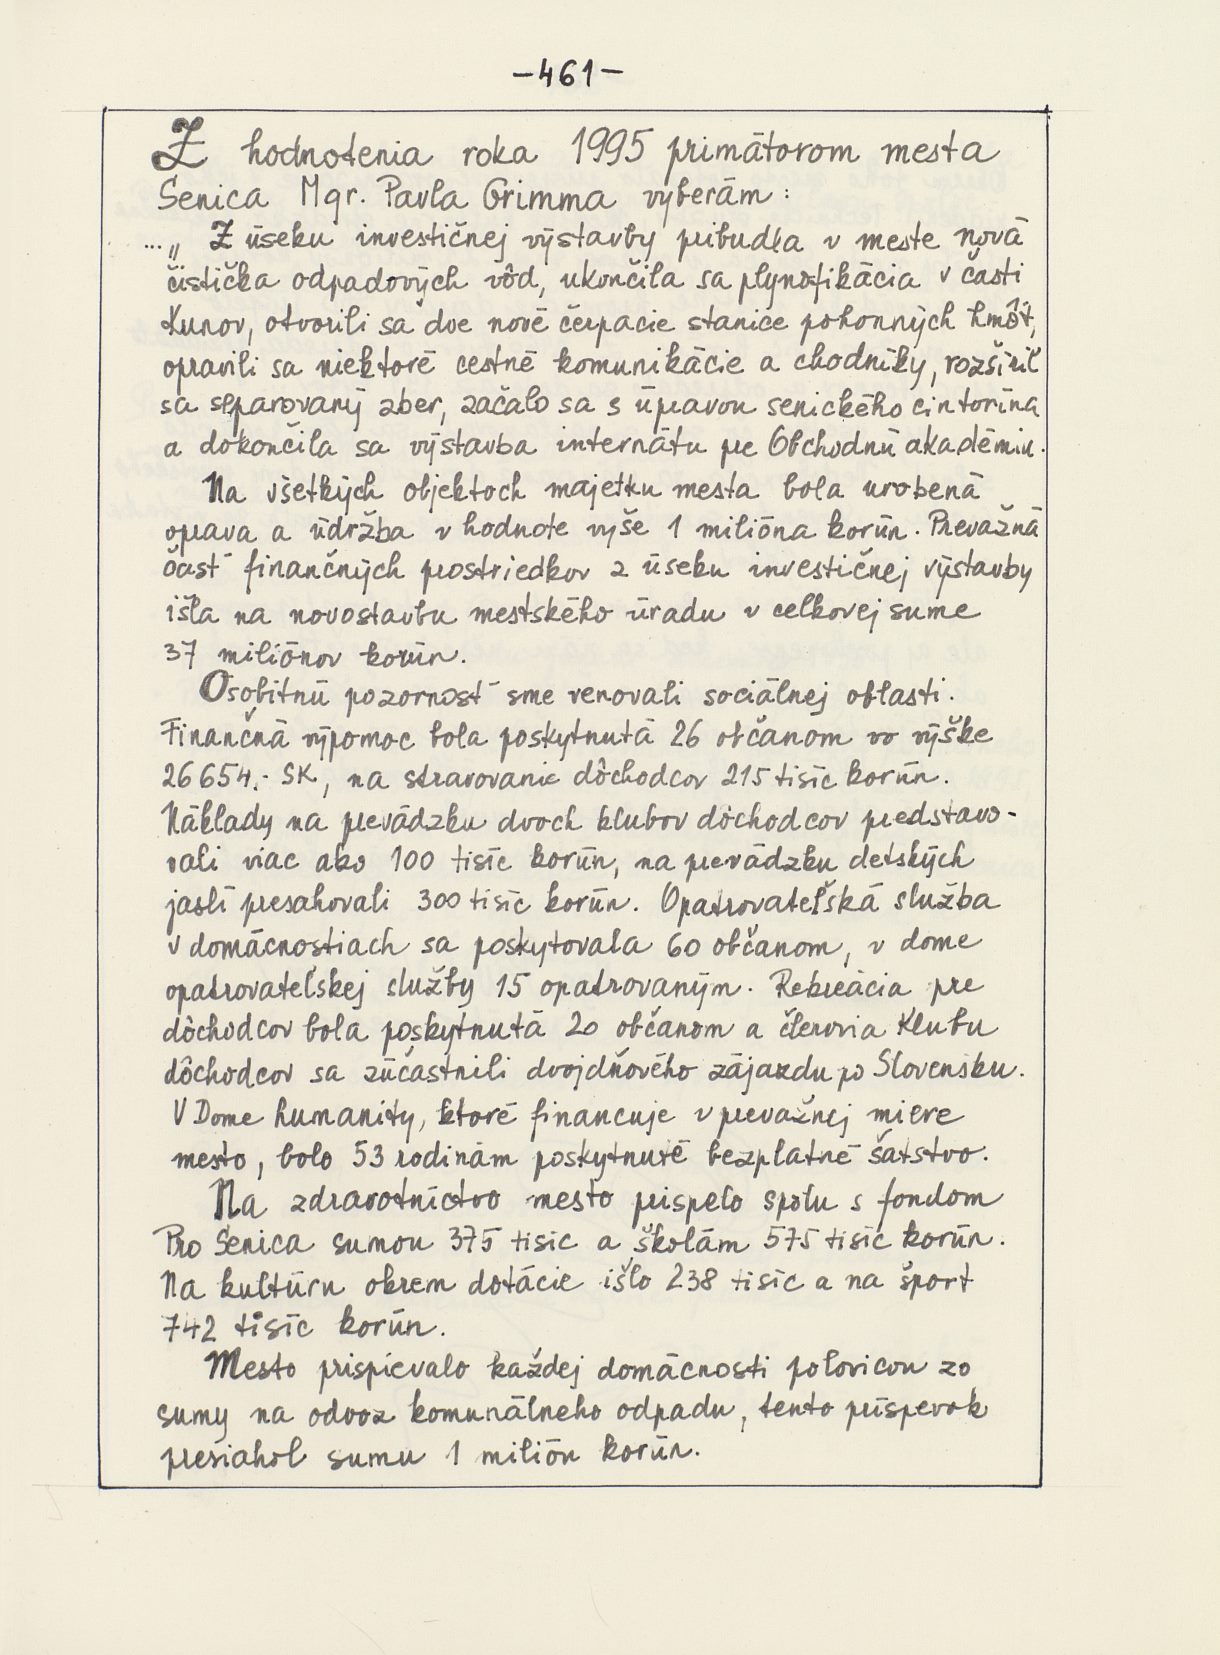 -461-
Z hodnotenia roka 1995 primátorom mesta
Senica Mgr. Pavla Grimma vyberám:
..." Z úseku investičnej výstavby pribudla v meste nová
čistička odpadových vôd, ukončila sa plynofikácia v časti
Kunov, otvorili sa dve nové čerpacie stanice pohonných hmôt,
opravili sa niektoré cestné komunikácie a chodníky, rozšíril
sa separovaný zber, začalo sa s úpravou senického cintorína
a dokončila sa výstavba internátu pre Obchodnú akadémiu.
Na všetkých objektoch majetku mesta bola urobená
oprava a údržba v hodnote vyše 1 milióna korún. Prevažná
časť finančných prostriedkov z úseku investičnej výstavby
išla na novostavbu mestského úradu v celkovej sume
37 miliónov korún.
Osobitnú pozornosť sme venovali sociálnej oblasti.
Finančná výpomoc bola poskytnutá 26 občanom vo výške
26 654.- SK, na stravovanie dôchodcov 215 tisíc korún.
Náklady na prevádzku dvoch klubov dôchodcov predstavo-
vali viac ako 100 tisíc korún, na prevádzku detských
jaslí presahovali 300 tisíc korún. Opatrovateľská služba
v domácnostiach sa poskytovala 60 občanom, v dome
opatrovateľskej služby 15 opatrovaným. Rekreácia pre
dôchodcov bola poskytnutá 20 občanom a členovia Klubu
dôchodcov sa zúčastnili dvojdňového zájazdu po Slovensku.
V Dome humanity, ktoré financuje v prevažnej miere
mesto, bolo 53 rodinám poskytnuté bezplatné šatstvo.
Na zdravotníctvo mesto prispelo spolu s fondom
Pro Senica sumou 375 tisíc a školám 575 tisíc korún.
Na kultúru okrem dotácie išlo 238 tisíc a na šport
742 tisíc korún.
Mesto prispievalo každej domácnosti polovicou zo
sumy na odvoz komunálneho odpadu, tento príspevok
presiahol sumu 1 milión korún.